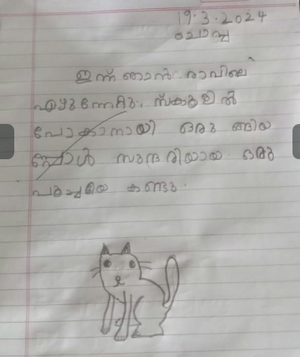 19.3.2024
ചൊവ്വ
ഇന്ന് ഞാൻ രാവിലെ
എഴുന്നേറ്റു. സ്കൂളിൽ
പോകാനായി ഒരു
സുന്ദരിയായ ഒരു
പൂച്ചയെ കണ്ടു.